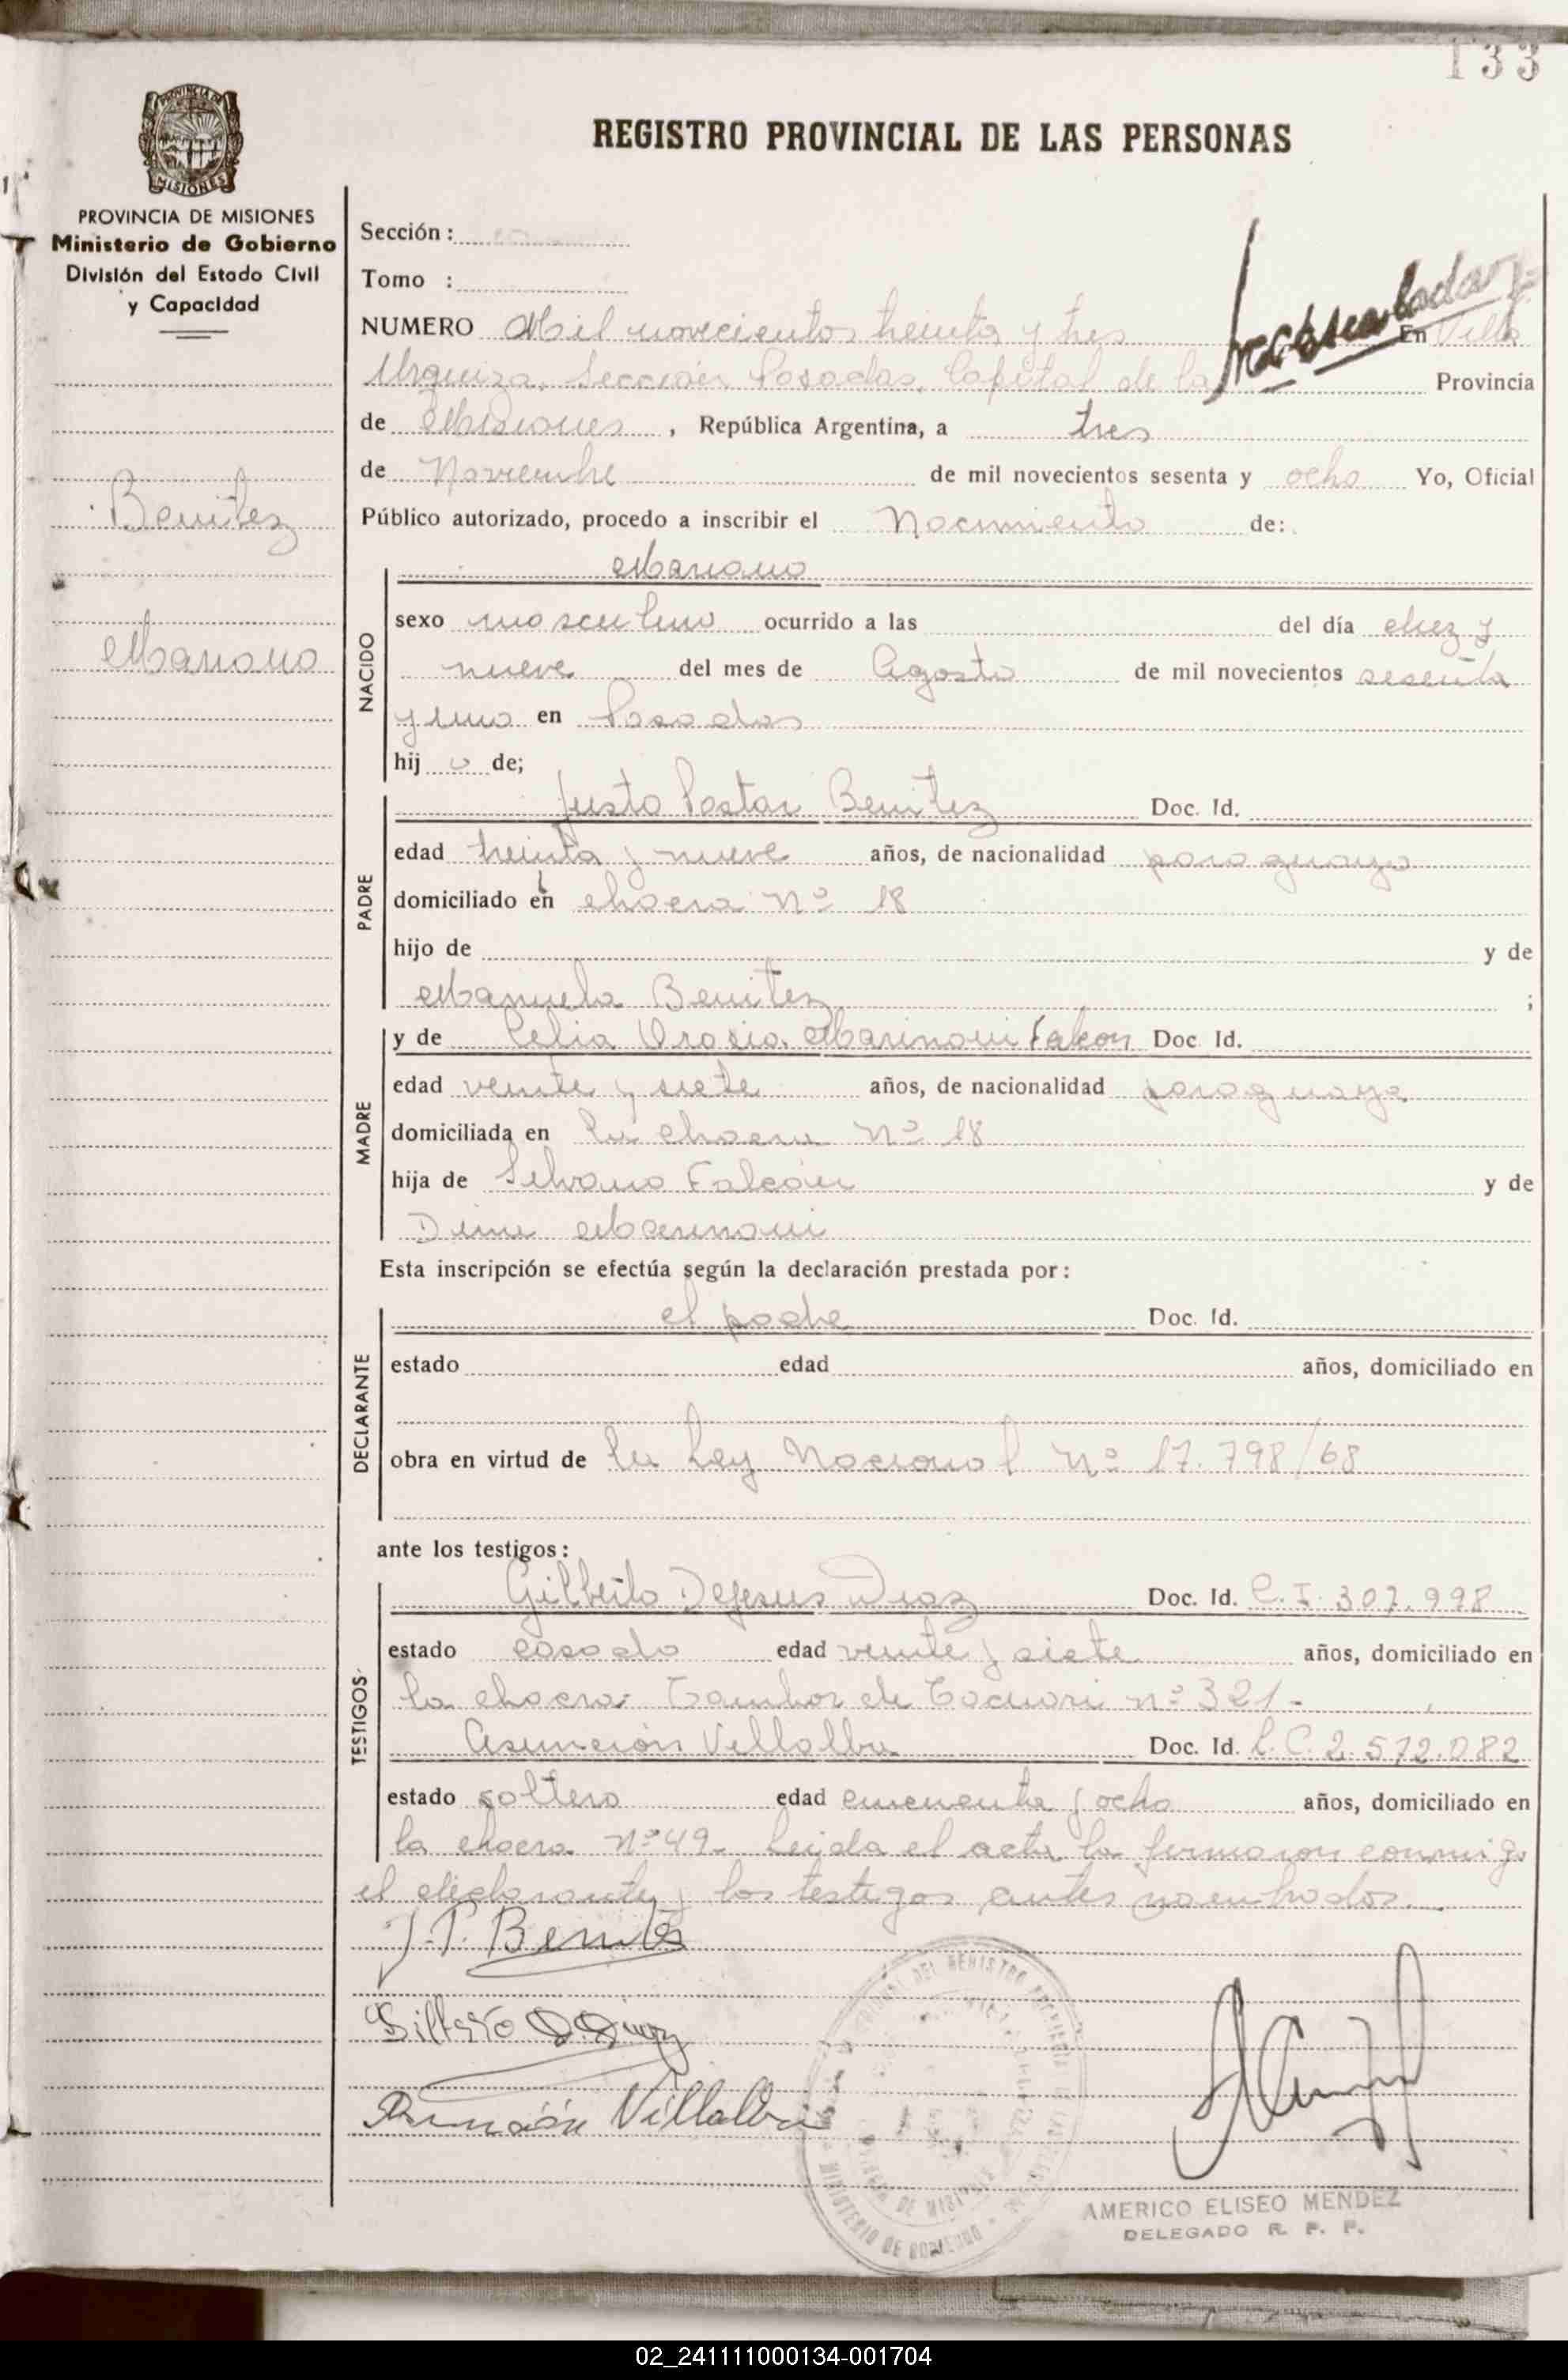 133
REGISTRO PROVINCIAL DE LAS PERSONAS
PROVINCIA DE MISIONES
PROVINCIA DE MISIONES
Ministerio de Gobierno
División del Estado Civil
y Capacidad
Benitez
Mariano
Sección:
Tomo :
NUMERO Mil novecientos treinta y tres En Villa
Urquiza, Sección Posadas, Capital de la Provincia
de Misiones, República Argentina, a tres
de Noviembre de mil novecientos sesenta y ocho Yo, Oficial
Público autorizado, procedo a inscribir el Nacimiento de:
Mariano
NACIDO
sexo masculino ocurrido a las del día diez y
nueve del mes de Agosto de mil novecientos sesenta
y uno en Posadas
hij o de;
PADRE
Justo Pastor Benitez Doc. Id.
edad treinta y nueve años, de nacionalidad paraguaya
domiciliado en chacra Nº 18
hijo de y de
Manuela Benitez ;
MADRE
y de Celia Marinoni Falcon Doc. Id.
edad veinte y siete años, de nacionalidad paraguaya
domiciliada en la chacra Nº 18
hija de Silvano Falcón y de
Marinoni
Esta inscripción se efectúa según la declaración prestada por:
DECLARANTE
el padre Doc. Id.
estado edad años, domiciliado en
obra en virtud de la Ley Nacional Nº 17.798/68
ante los testigos:
TESTIGOS
Gilberto Dejesus Diaz Doc. Id. C.I. 307.998
estado casado edad veinte y siete años, domiciliado en
la chacra Tambor de Tacuari nº 321-
Asunción Villalba Doc. Id. L.C. 2.572.082
estado soltera edad cincuenta y ocho años, domiciliado en
la chacra Nº 49- Leida el acta la firmaron conmigo
el declarante y los testigos antes nombrados.
J.P. Benitez
Gilberto D. Diaz
Asunción Villalba
MINISTERIO DE GOBIERNO
AMERICO ELISEO MENDEZ
DELEGADO R. P. P.
02_241111000134-001704